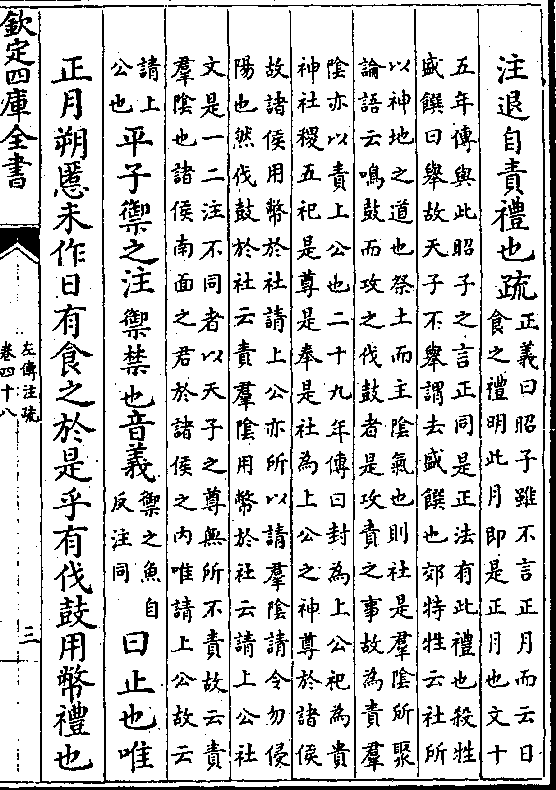 注退自責禮也疏正義曰昭子雖不言正月而云日
食之禮明此月即是正月也文十
五年傳與此昭子之言正同是正法有此禮也殺牲
盛饌曰舉故天子不舉謂去盛饌也郊特牲云社所
以神地之道也祭土而主陰氣也則社是羣陰所聚
論語云鳴鼓而攻之伐鼓者是攻責之事故為責羣
陰亦以責上公也二十九年傳曰封為上公祀為貴
神社稷五祀是尊是奉是社為上公之神尊於諸侯
故諸侯用幣於社請上公亦所以請羣陰請令勿侵
陽也然伐鼓於社云責羣陰用幣於社云請上公社
文是一二注不同者以天子之尊無所不責故云責
羣陰也諸侯南面之君於諸侯之内唯請上公故云
請上
公也
平子禦之注禦禁也音義
禦之魚自
反注同
曰止也唯
正月朔慝未作日有食之於是乎有伐鼓用幣禮也
欽定四庫全書
左傳注疏
卷四十八
三